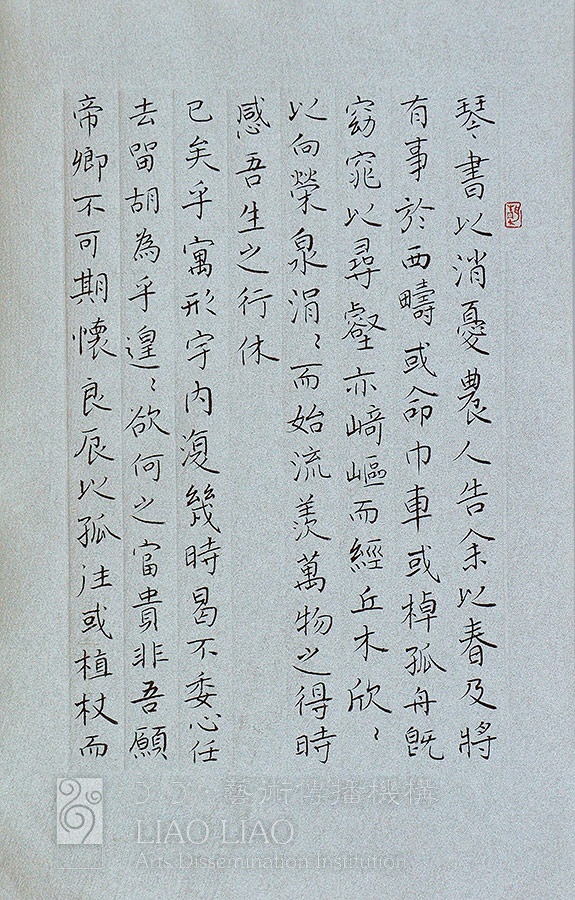 琴書以消憂農人告余以春及將
有事於西疇或命巾車或棹孤舟既
窈窕以尋壑亦崎嶇而經丘木欣〻
以向榮泉涓〻而始流羨萬物之得時
感吾生之行休
已矣乎寓形宇內復幾時曷不委心任
去留胡為乎遑〻欲何之富貴非吾願
帝鄉不可期懷良辰以孤往或植杖而
了了·藝術傳播機構
LIAO LIAO
Arts Dissemination Institution